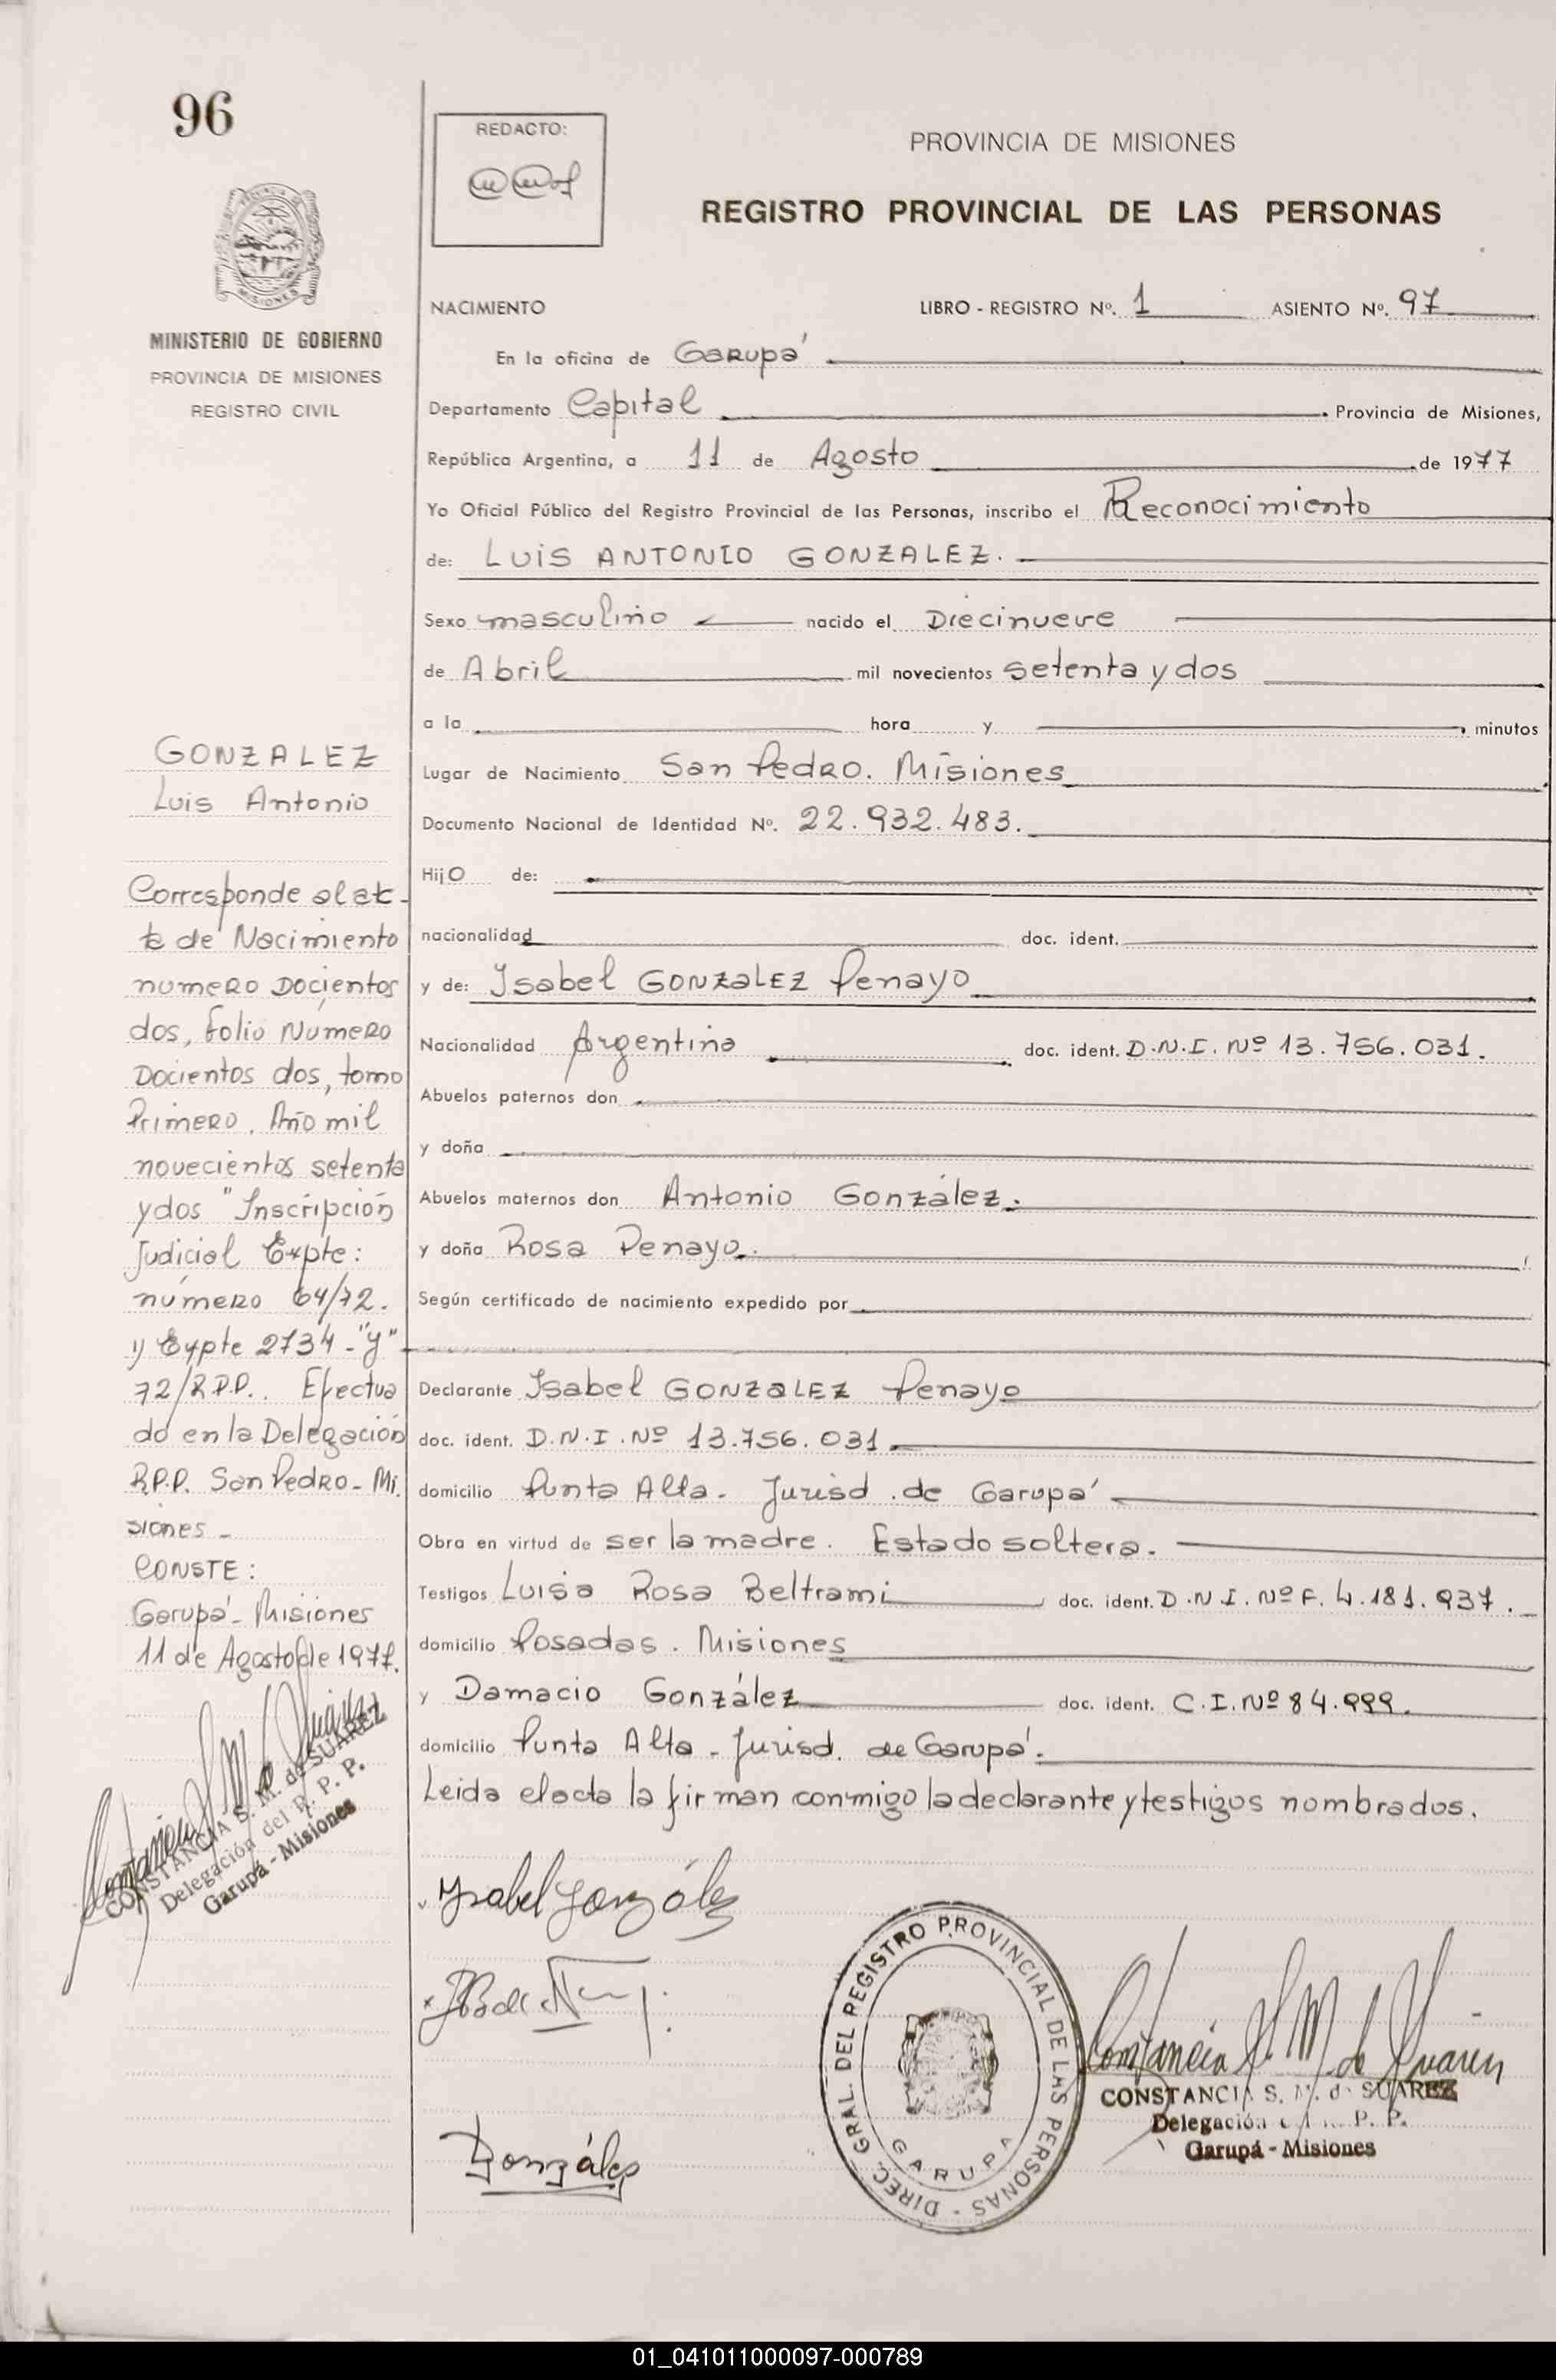 96
REDACTO:
PROVINCIA DE MISIONES
REGISTRO PROVINCIAL DE LAS PERSONAS
MISIONES
MINISTERIO DE GOBIERNO
PROVINCIA DE MISIONES
REGISTRO CIVIL
NACIMIENTO LIBRO - REGISTRO Nº. 1 ASIENTO Nº. 97
En la oficina de Garupá
Departamento Capital Provincia de Misiones,
República Argentina, a 11 de Agosto de 1977
Yo Oficial Público del Registro Provincial de las Personas, inscribo el Reconocimiento
de: LUIS ANTONIO GONZALEZ.
Sexo masculino nacido el Diecinueve
de Abril mil novecientos setenta y dos
a la hora y minutos
Lugar de Nacimiento San Pedro. Misiones
Documento Nacional de Identidad Nº. 22.932.483.
HijO de:
nacionalidad doc. ident.
y de: Ysabel GONZALEZ Penayo
Nacionalidad Argentina doc. ident. D.N.I. Nº 13.756.031.
Abuelos paternos don
y doña
Abuelos maternos don Antonio González.
y doña Rosa Penayo.
Según certificado de nacimiento expedido por
Declarante Ysabel GONZALEZ Penayo
doc. ident. D.N.I. Nº 13.756.031
domicilio Punta Alta. Jurisd. de Garupá
Obra en virtud de ser la madre. Estado soltera.
Testigos Luisa Rosa Beltrami doc. ident. D.N.I. Nº F. 4.181.937.
domicilio Posadas. Misiones
y Damacio González doc. ident. C.I. Nº 84.999.
domicilio Punta Alta - Jurisd. de Garupá.
Leida el acta la firman conmigo la declarante y testigos nombrados.
GONZALEZ
Luis Antonio
Corresponde al ac-
ta de Nacimiento
numero Docientos
dos, folio Número
Docientos dos, tomo
Primero. Año mil
novecientos setenta
y dos "Inscripción
Judicial Expte:
número 64/72.
y Expte 2734-"Y"
72/R.P.P.. Efectua
do en la Delegación
R.P.P. San Pedro - Mi.
siones -
CONSTE:
Garupá - Misiones
11 de Agosto de 1977.
Constancia S. M. de Suárez
CONSTANCIA S. M. de SUAREZ
Delegación del R. P. P.
Garupá - Misiones
Ysabel González
González
DIREC. GRAL. DEL REGISTRO PROVINCIAL DE LAS PERSONAS -
GARUPA
Constancia S. M. de Suárez
CONSTANCIA S. M. de SUAREZ
Delegación R. P. P.
Garupá - Misiones
01_041011000097-000789